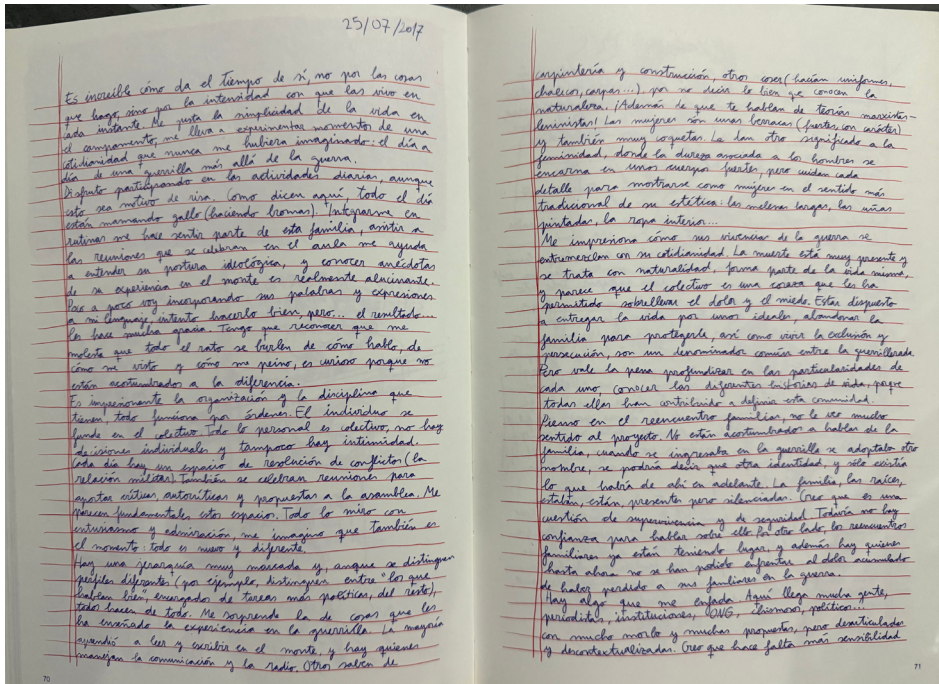 25/07/2017
Es increíble cómo da el tiempo de sí, no por las cosas
que hago, sino por la intensidad con que las vivo en
cada instante. Me gusta la simplicidad de la vida en
el campamento, me lleva a experimentar momentos de una
cotidianidad que nunca me hubiera imaginado: el día a
día de una guerrilla más allá de la guerra.
Disfruto participando en las actividades diarias, aunque
esto sea motivo de risa. Como dicen aquí, todo el día
están mamando gallo (haciendo bromas). Integrarme en
rutinas me hace sentir parte de esta familia, asistir a
las reuniones que se celebran en el aula me ayuda
a entender su postura ideológica, y conocer anécdotas
de su experiencia en el monte es realmente alucinante.
Poco a poco voy incorporando sus palabras y expresiones
a mi lenguaje, intento hacerlo bien, pero... el resultado...
les hace mucha gracia. Tengo que reconocer que me
molesta que todo el rato se burlen de cómo hablo, de
cómo me visto y cómo me peino, es curioso porque no
están acostumbrados a la diferencia.
Es impresionante la organización y la disciplina que
tienen, todo funciona por órdenes. El individuo se
funde en el colectivo. Todo lo personal es colectivo, no hay
decisiones individuales y tampoco hay intimidad.
Cada día hay un espacio de resolución de conflictos (la
relación militar). También se celebran reuniones para
aportar críticas, autocríticas y propuestas a la asamblea. Me
parecen fundamentales estos espacios. Todo lo miro con
entusiasmo y admiración, me imagino que también es
el momento: todo es nuevo y diferente.
Hay una jerarquía muy marcada y, aunque se distinguen
perfiles diferentes (por ejemplo, distinguen entre "los que
hablan bien", encargados de tareas más políticas, del resto),
todos hacen de todo. Me sorprende la de cosas que les
ha enseñado la experiencia en la guerrilla. La mayoría
aprendió a leer y escribir en el monte, y hay quienes
manejan la comunicación y la radio. Otros saben de
70
carpintería y construcción, otros coser (hacían uniformes,
chalecos, carpas...), por no decir lo bien que conocen la
naturaleza. ¡Además de que te hablan de teorías marxistas-
leninistas! Las mujeres son unas berracas (fuertes, con carácter)
y también muy coquetas. Le dan otro significado a la
feminidad, donde la dureza asociada a los hombres se
encarna en unos cuerpos fuertes, pero cuidan cada
detalle para mostrarse como mujeres en el sentido más
tradicional de su estética: las melenas largas, las uñas
pintadas, la ropa interior...
Me impresiona cómo sus vivencias de la guerra se
entremezclan con su cotidianidad. La muerte está muy presente y
se trata con naturalidad, forma parte de la vida misma,
y parece que el colectivo es una coraza que les ha
permitido sobrellevar el dolor y el miedo. Estar dispuesto
a entregar la vida por unos ideales, abandonar la
familia para protegerla, así como vivir la exclusión y
persecución, son un denominador común entre la guerrillerada.
Pero vale la pena profundizar en las particularidades de
cada uno, conocer las diferentes historias de vida, porque
todas ellas han contribuido a definir esta comunidad.
Pienso en el reencuentro familiar, no le veo mucho
sentido al proyecto. No están acostumbrados a hablar de la
familia, cuando se ingresaba en la guerrilla se adoptaba otro
nombre, se podría decir que otra identidad, y sólo existía
lo que habría de ahí en adelante. La familia, las raíces,
estaban, están, presentes pero silenciadas. Creo que es una
cuestión de supervivencia y de seguridad. Todavía no hay
confianza para hablar sobre ello. Por otro lado, los reencuentros
familiares ya están teniendo lugar, y además hay quienes
hasta ahora no se han podido enfrentar al dolor acumulado
de haber perdido a sus familiares en la guerra.
Hay algo que me enfada. Aquí llega mucha gente,
periodistas, instituciones, ONG, chismosos, políticos...
con mucho morbo y muchas propuestas, pero desarticuladas
y descontextualizadas. Creo que hace falta más sensibilidad
71